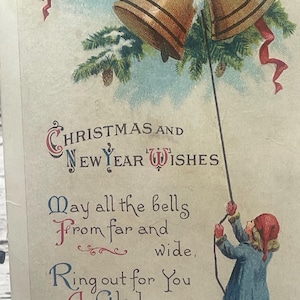 CHRISTMAS AND
NEW YEAR WISHES
May all the bells
From far and
wide,
Ring out for You